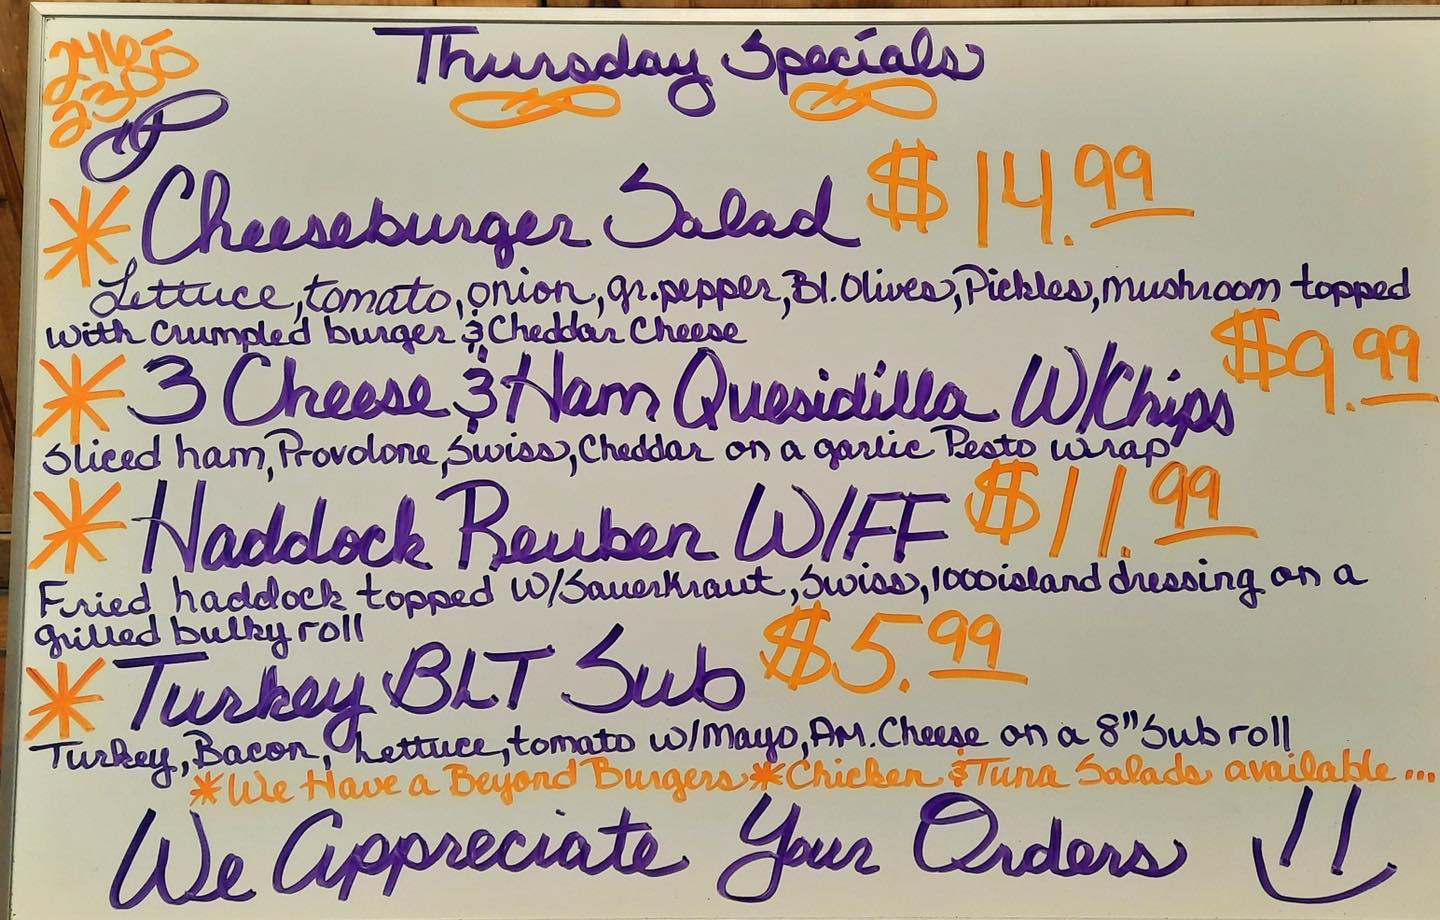 246-
2300
Thursday Specials
* Cheeseburger Salad $14.99
Lettuce, tomato, onion, gr. pepper, Bl. Olives, Pickles, mushroom topped
with crumpled burger & Cheddar Cheese
* 3 Cheese & Ham Quesidilla W/Chips $9.99
Sliced ham, Provolone, Swiss, Cheddar on a garlic Pesto wrap
* Haddock Reuben W/FF $11.99
Fried haddock topped W/SauerKraut, Swiss, 1000 island dressing on a
grilled bulky roll
* Turkey BLT Sub $5.99
Turkey, Bacon, Lettuce, tomato w/Mayo, AM. Cheese on a 8" Sub roll
*We Have a Beyond Burgers *Chicken & Tuna Salads available ...
We Appreciate Your Orders